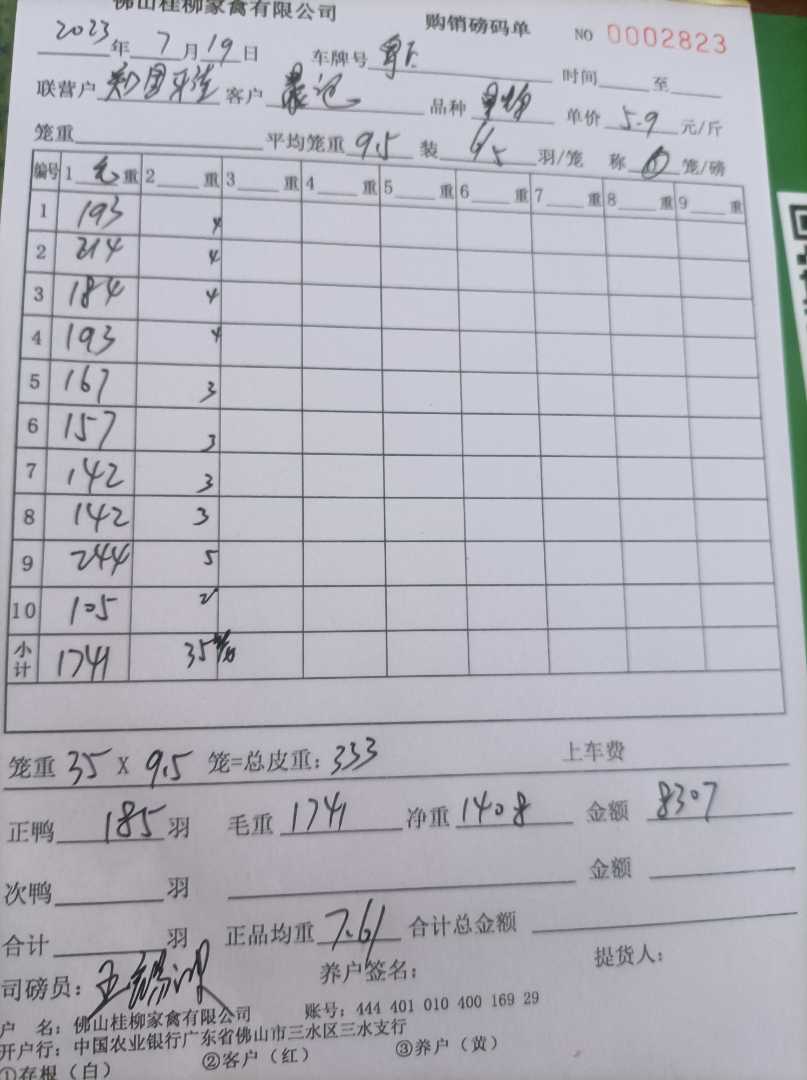 佛山桂柳家禽有限公司 购销磅码单 NO 0002823
2023年 7月19日 车牌号 时间 至
联营户 客户 品种 单价 5.9 元/斤
笼重 平均笼重 9.5 装 6/5 羽/笼 称 笼/磅
编号 1 毛 重 2 重 3 重 4 重 5 重 6 重 7 重 8 重 9 重
1 193 4
2 214 4
3 184 4
4 193 4
5 167 3
6 157 3
7 142 3
8 142 3
9 244 5
10 105 2
小计 1741 35
笼重 35 X 9.5 笼=总皮重: 333 上车费
正鸭 185 羽 毛重 1741 净重 1408 金额 8307
次鸭 羽 金额
合计 羽 正品均重 7.61 合计总金额
司磅员: 养户签名: 提货人:
户 名: 佛山桂柳家禽有限公司 账号: 444 401 010 400 169 29
开户行: 中国农业银行广东省佛山市三水区三水支行
①存根(白) ②客户(红) ③养户(黄)